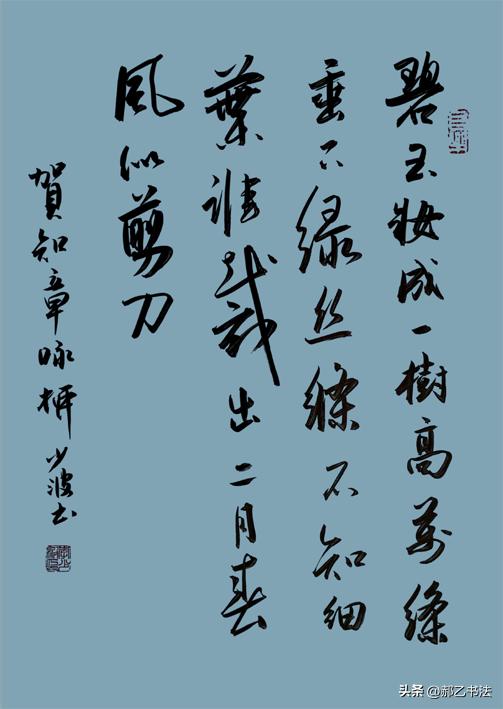 碧玉妝成一樹高萬絛
垂下綠丝絛不知细
葉誰裁出二月春
風似剪刀
賀知章咏柳少波书
头条@郝乙书法